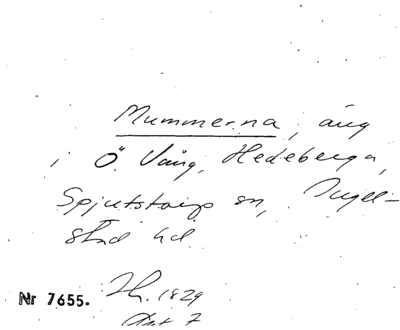 Mummerna, äng
i Ö. Vång, Hedeberga,
Spjutstorp sn, Ingel-
stad hd.
Nr 7655. 1829
Akt 7